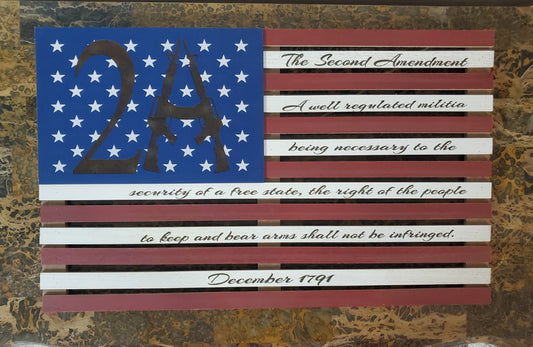 2A
The Second Amendment
A well regulated militia
being necessary to the
security of a free state, the right of the people
to keep and bear arms shall not be infringed.
December 1791